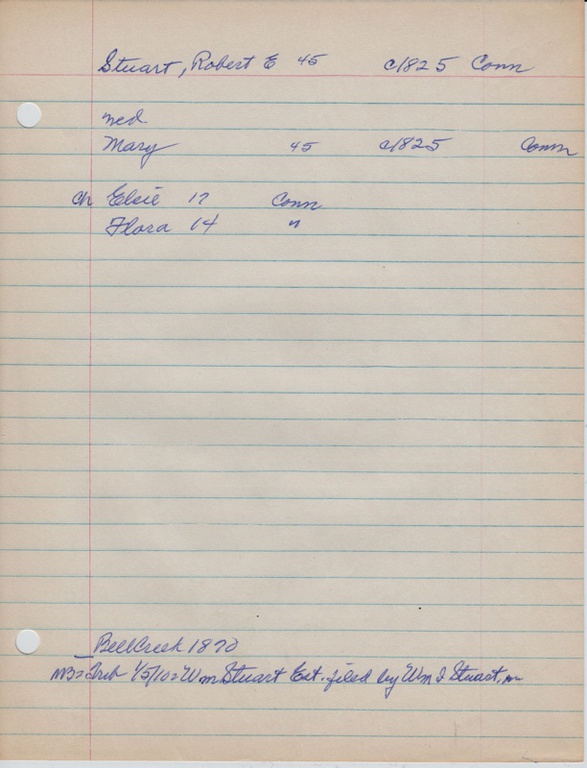 Stuart, Robert E 45 c1825 Conn
med
Mary 45 c1825 Conn
ch Elsie 17 Conn
Flora 14 "
Bell Creek 1870
1/5/10 = Wm Stuart Est. filed by Wm I Stuart,